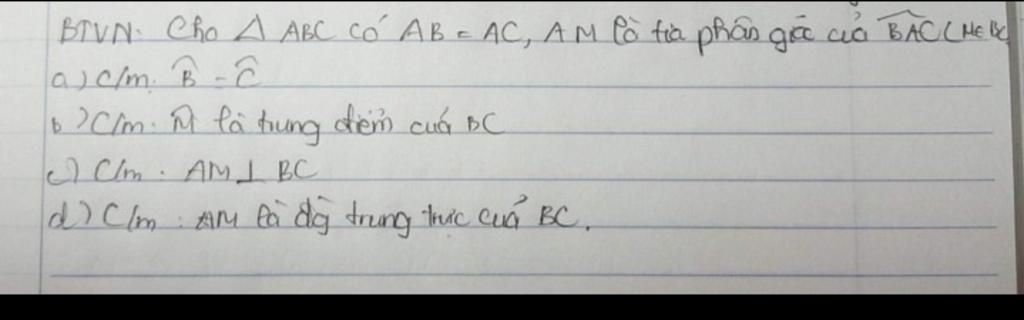 BTVN: Cho Δ ABC có AB = AC, AM là tia phân giác của BAC (M∈ BC
a) C/m. B̂ = Ĉ
b) C/m. M là trung điểm của BC
c) C/m. AM ⊥ BC
d) C/m: AM là đg trung trực của BC.